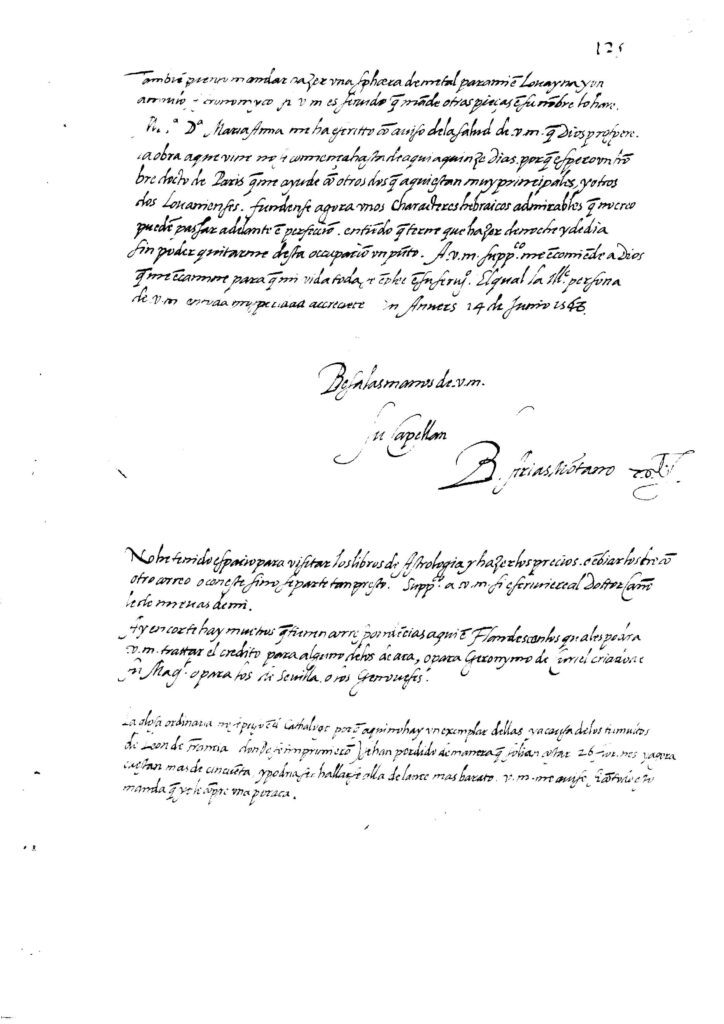 125
Tambiē pienso mandar hazer vna sphæra de metal para mi ē Louayna y vn
annulo astronomyco si v.m es seruido q̄ māde otras pieças ē su nōbre lo hare.
D.ª Maria Anna me ha escritto cō auiso de la salud de v.m. q̄ Dios prospere.
la obra a que vine no se comēçara hasta de aqui a quinze dias. porq̄ espero vn hō
bre docto de Paris q̄ me ayude cō otros dos q̄ aqui estan muy principales, y otros
dos Louanienses. fundense agora vnos characteres hebraicos admirables q̄ no creo
puedē passar adelante ē perfeciō. entiēdo q̄ terne que hazer de noche y de dia
sin poder quitarme desta occupaciō vn pūto. A v.m supp.co me ecomiēde a Dios
q̄ me ecamine para q̄ mi vida toda se eplee ē su serui.º El qual la Ill.e persona
de v.m en vida y prosperidad acreciete in Anvers 14 de Junio 1568.
Besa las manos de v.m.
su Capellan
B. Arias Mōtano
No he tenido espacio para visitar los libros de Astrologia y hazer los precios. ēbiarlos he cō
otro correo o con este si no se parte tan presto. Supp.co a v.m. si escriuiere al Dottor
le de nueuas de mi.
Ay en corte hay muchos q̄ tienen correspondēcias aqui ē Flandes con los quales podra
v.m. trattar el credito para alguno dellos de aca, o para Geronymo de Curiel criado de
su Mag.d o para los de Sevilla, o los Genoueses.
La glosa ordinaria no se puso ē el Cathalogo porq̄ aqui no hay vn exemplar dellas y a causa de los tumultos
de Leon de francia donde se imprimierō se han perdido de manera q̄ solian costar 26 flor.nes y agora
cuestan mas de cincuēta, y podria ser hallarse alla delante mas barato. v.m. me auise si cō todo esto
manda q̄ yo le cōpre vna por aca.